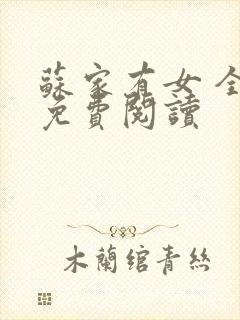 蘇家有女 全
免費閱讀
木蘭綰青絲